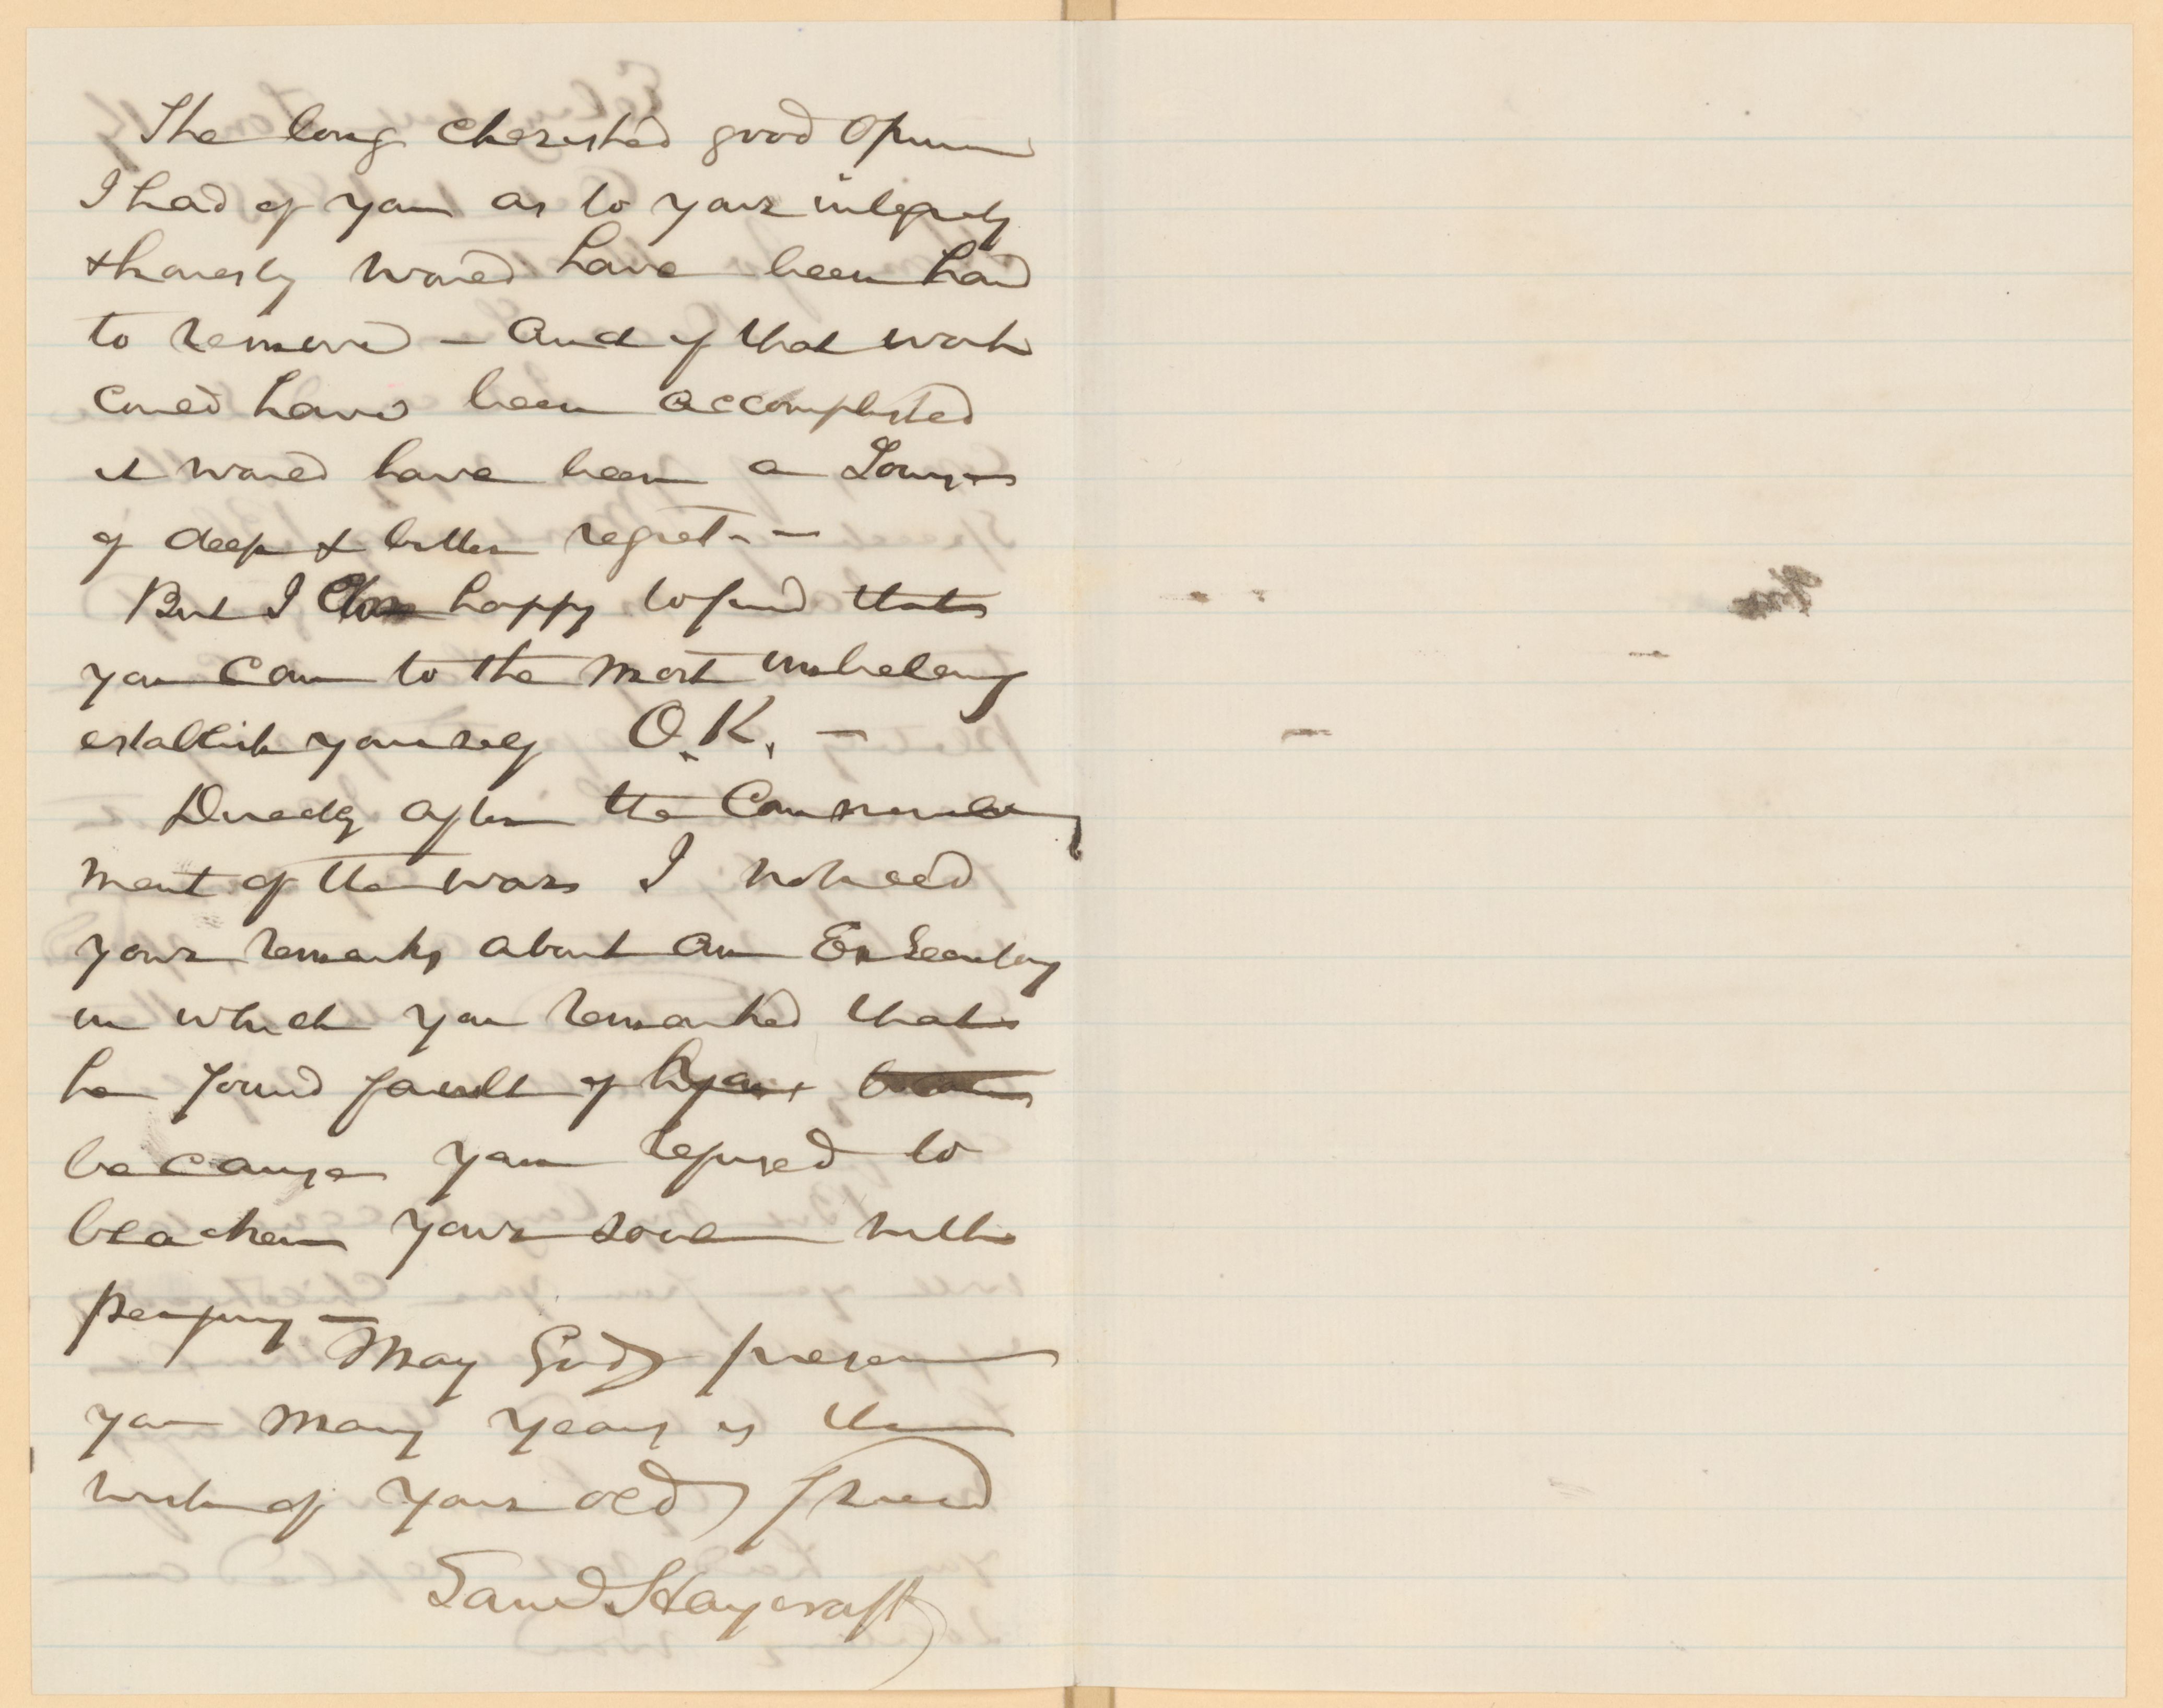 The long cherished good opinion
I had of you as to your integrity
& honesty would have been hard
to remove — and if that work
could have been accomplished
it would have been a source
of deep & bitter regret —
But I am happy to find that
you can to the most unbelieving
establish yourself O.K. —
Directly after the Commence
ment of the war I noticed
your remarks about an Ex Secretary
in which you remarked that
he found fault of you
because you refused to
blacken your soul with
perjury —
May God preserve
you many years is the
wish of your old friend
Saml Haycraft